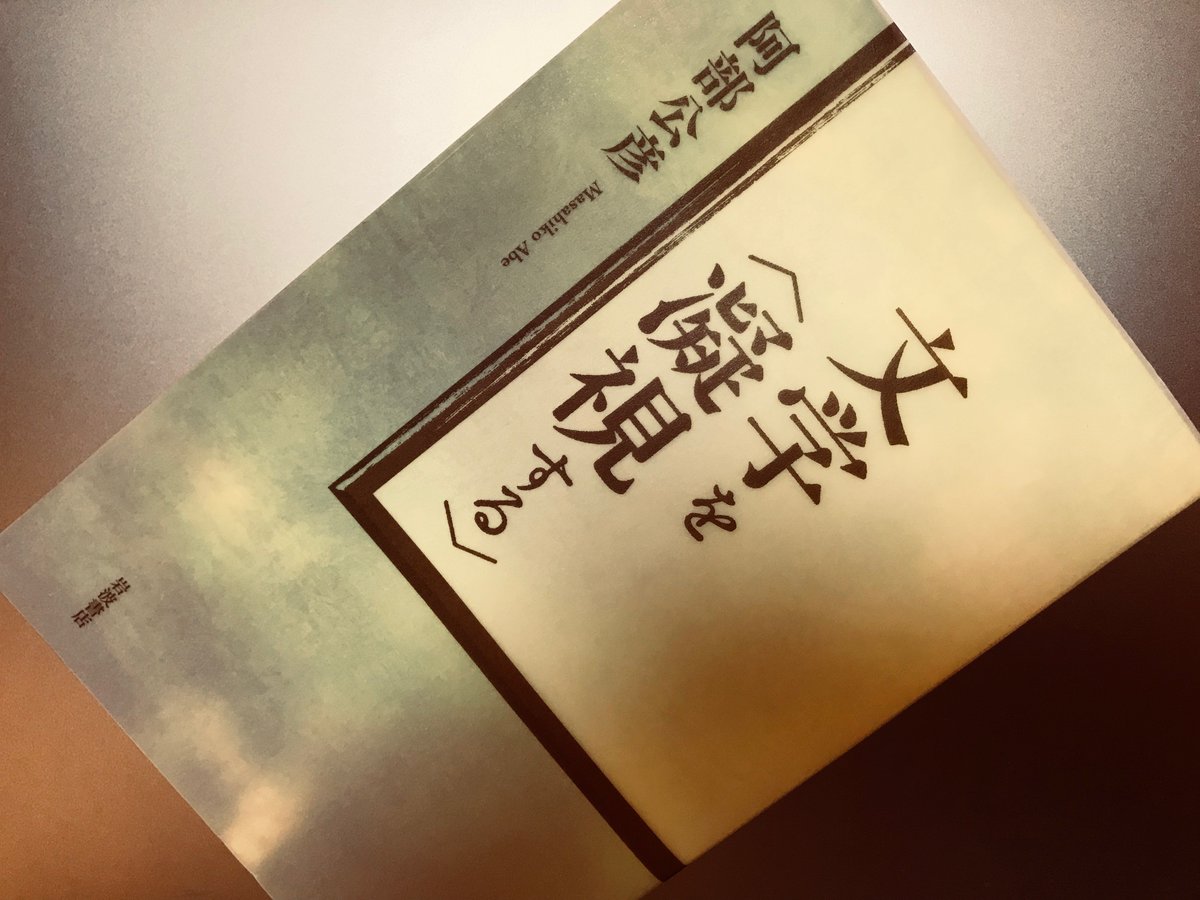 文学を
〈凝視する〉
阿部公彦
Masahiko Abe
岩波書店